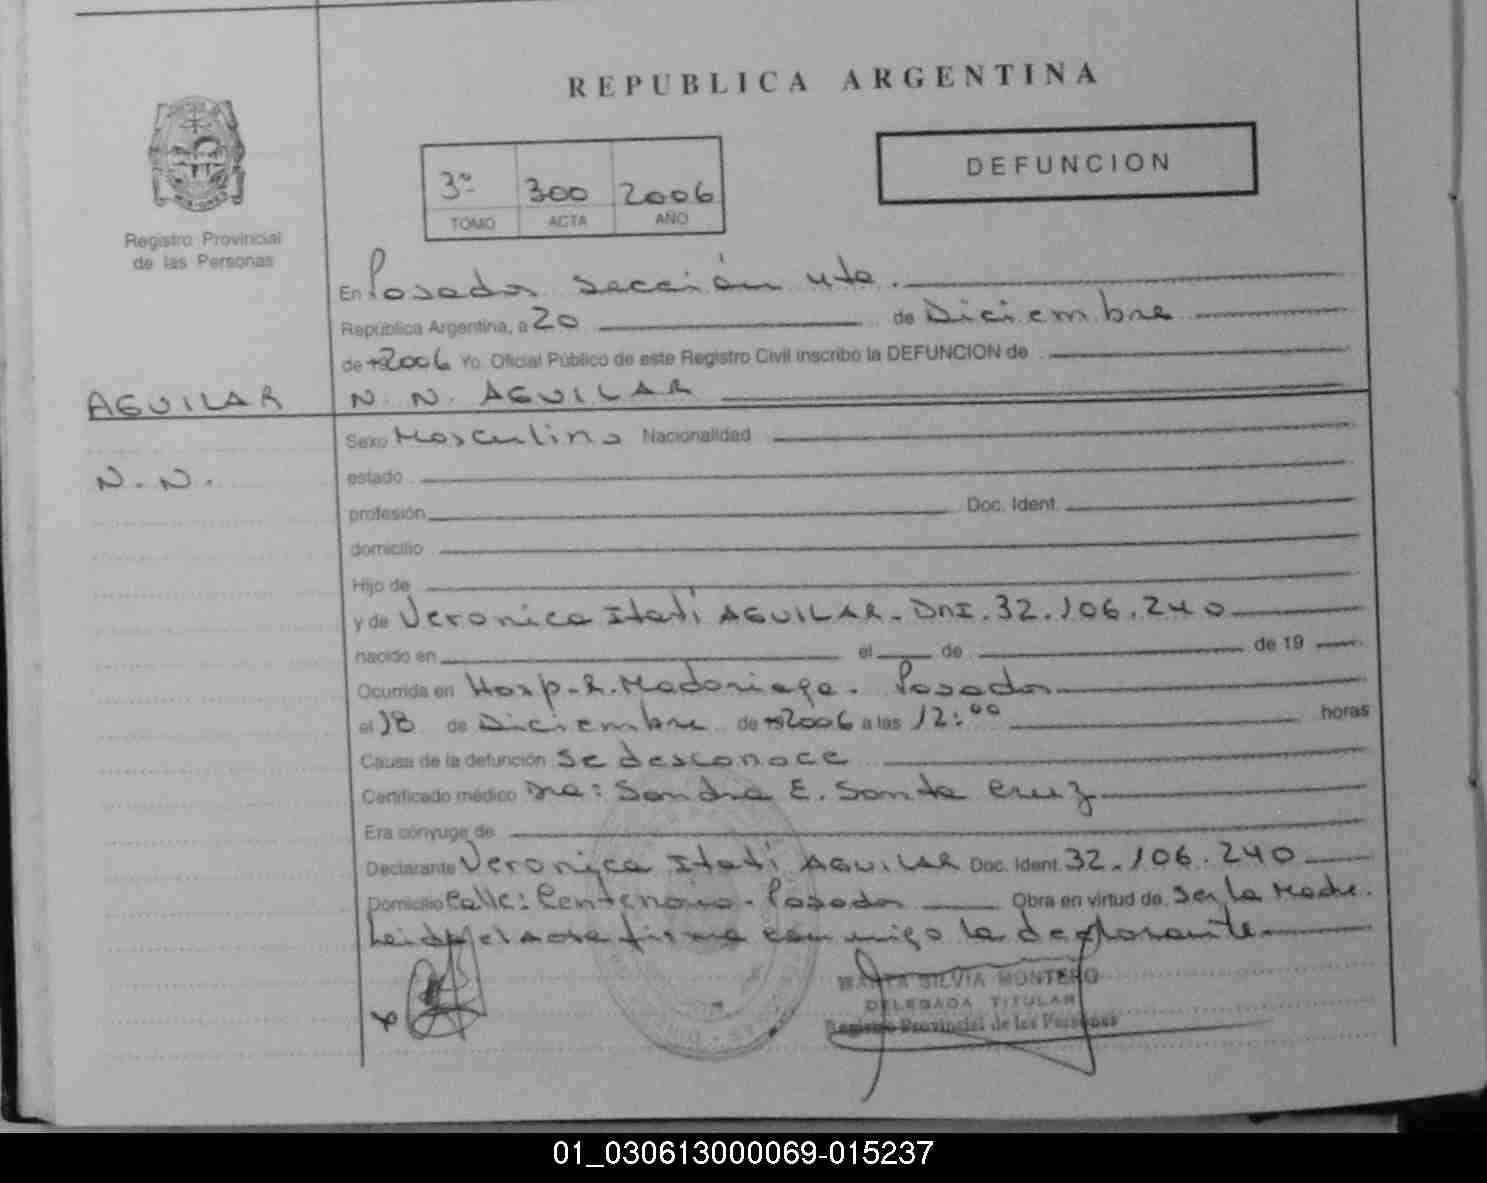 REPUBLICA ARGENTINA
DEFUNCION
3º 300 2006
TOMO ACTA AÑO
Registro Provincial
de las Personas
En Posadas sección 4ta.
República Argentina, a 20 de Diciembre
de 2006 Yo. Oficial Público de este Registro Civil inscribo la DEFUNCION de
AGUILAR
N. N. AGUILAR
Sexo Masculino Nacionalidad
N. N.
estado
profesión Doc. Ident.
domicilio
Hijo de
y de Veronica Itatí AGUILAR - DNI. 32.106.240
nacido en el de de 19
Ocurrida en Hosp. R. Madariaga. Posadas
el 18 de Diciembre de 2006 a las 12:00 horas
Causa de la defunción Se desconoce
Certificado médico Dra: Sandra E. Santa Cruz
Era cónyuge de
Declarante Veronica Itatí AGUILAR Doc. Ident. 32.106.240
Domicilio Calle: Centenario - Posadas Obra en virtud de Ser la Madre.
Leida el acta firma conmigo la declarante
MARTA SILVIA MONTERO
DELEGADA TITULAR
Registro Provincial de las Personas
01_030613000069-015237